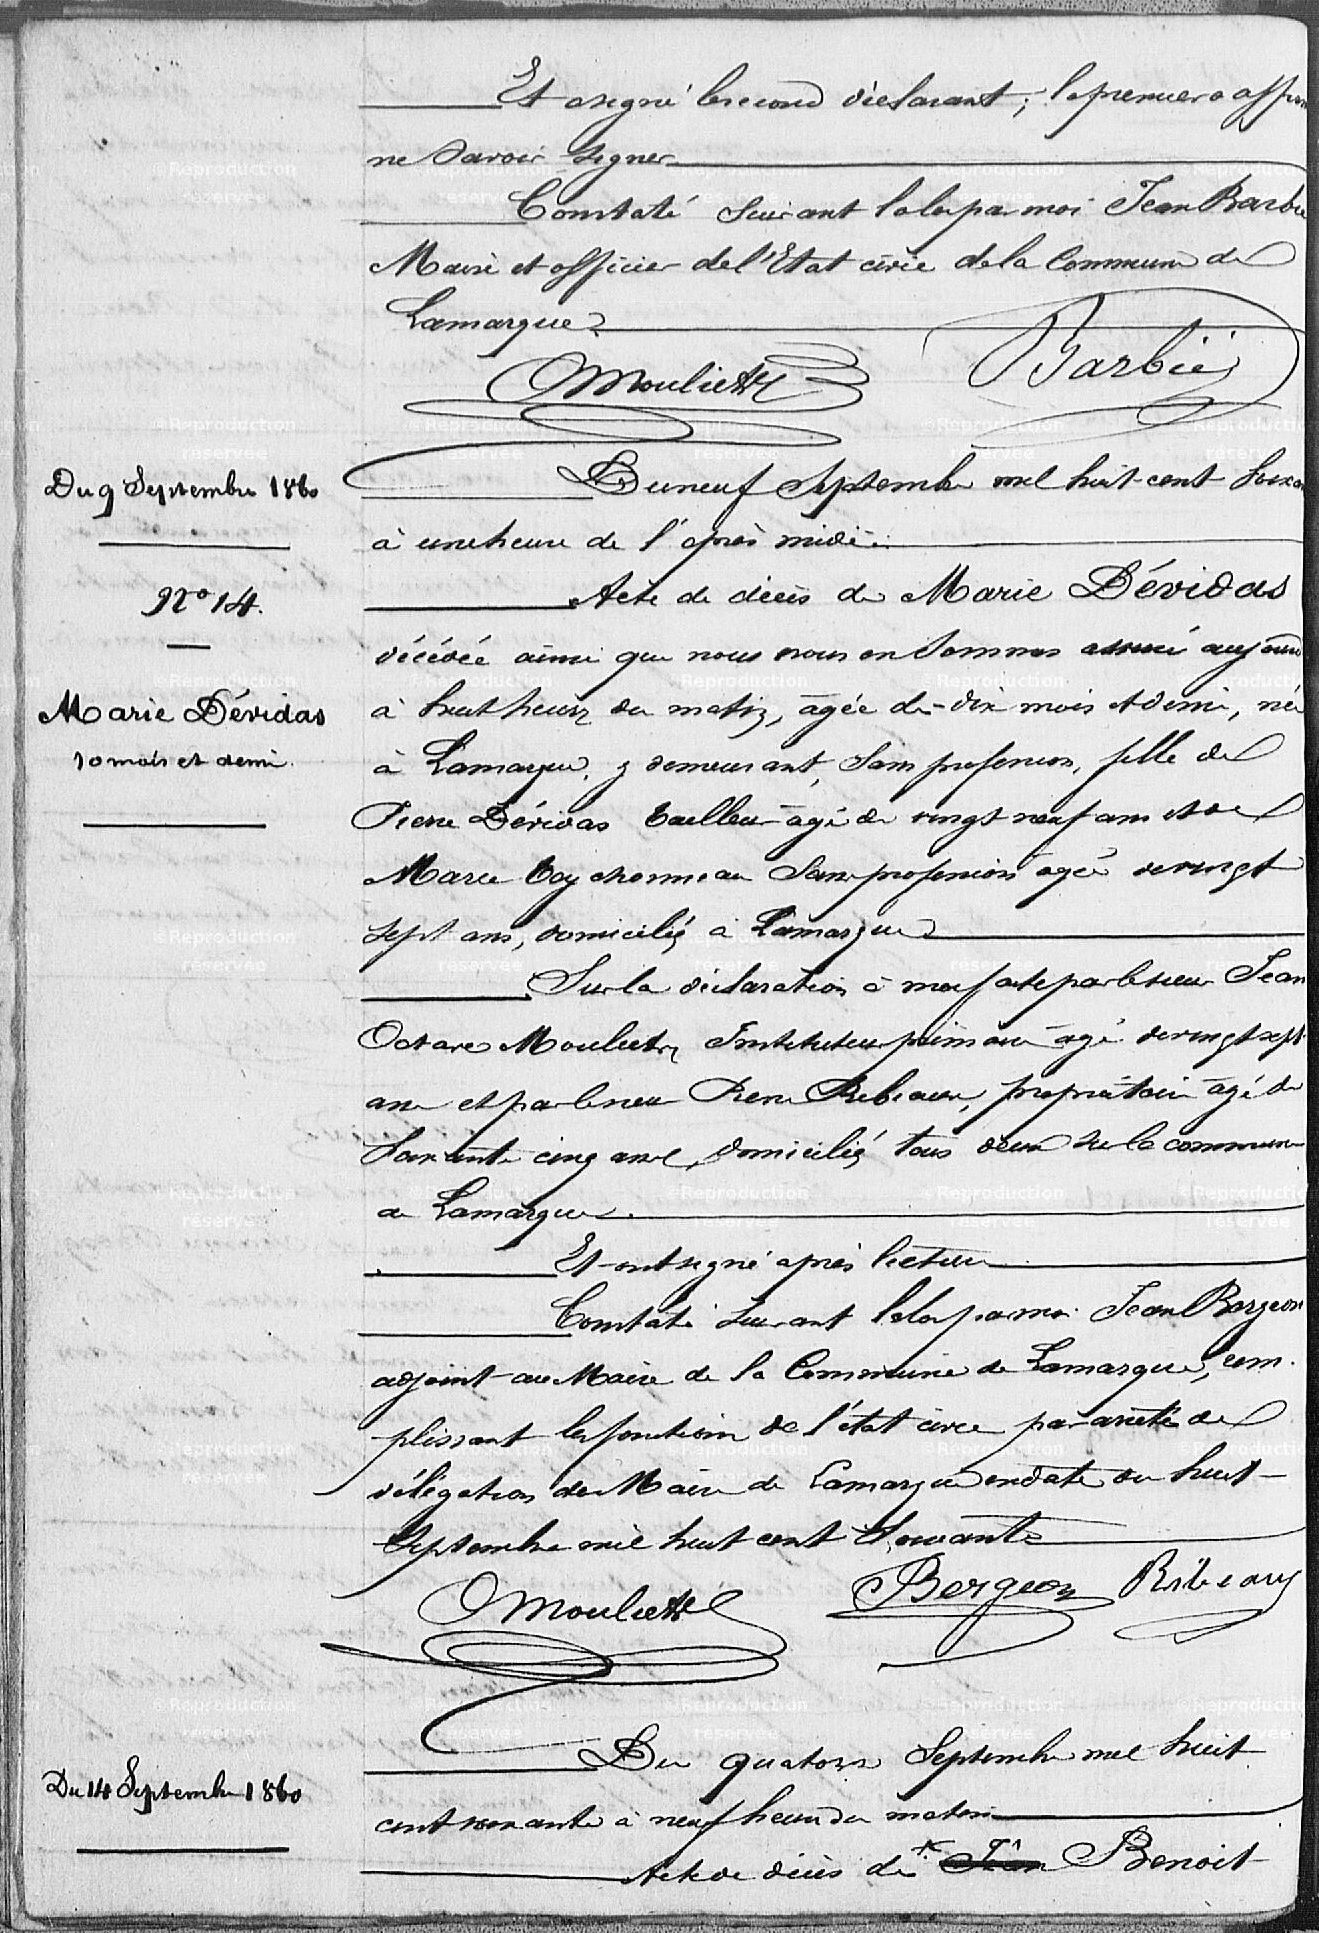 Et a signé le second déclarant ; le premier a affir
ne savoir signer
Constaté suivant la loi par moi Jean Barbi
Maire et officier de l'Etat civil de la Commune de
Lamarque
OMouliett Barbier
Du 9 Septembre 1860
Du neuf Septembre mil huit cent soixan
à une heure de l'après midi
N° 14.
Acte de décès de Marie Dévidas
décédée ainsi que nous nous en sommes assuré aujourd
Marie Dévidas
à huit heures du matin, âgée de dix mois et demi, née
10 mois et demi
à Lamarque, y demeurant, sans profession, fille de
Pierre Dévidas tailleur âgé de vingt neuf ans et de
Marie sans profession âgée de vingt
sept ans, domiciliés à Lamarque
Sur la déclaration à moi faite par le sieur Jean
Octave Mouliett, Instituteur primaire âgé de vingt sept
ans et par le sieur Pierre Ribeaux, propriétaire âgé de
soixante cinq ans, domiciliés tous deux sur la commune
de Lamarque
Et ont signé après lecture
Constaté suivant la loi par moi Jean Bergeon
adjoint au Maire de la Commune de Lamarque, rem-
plissant les fonctions de l'état civil par arrêté de
délégation de Maire de Lamarque en date du huit
Septembre mil huit cent soixante
OMouliett Bergeon Ribeaux
Du 14 Septembre 1860
Du quatorze Septembre mil huit
cent soixante à neuf heures du matin
Acte de décès de Jean Benoit